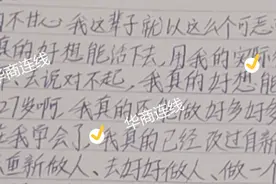 不甘心，我这辈子就以这么个可恶
真的好想能活下去，用我的实际
去说对不起，我真的好想能
21岁啊，我真的还想做好多好多
我学会了，我真的已经改过自新
重新做人、去好好做人、做一
华商连线
华商连线
华商连线